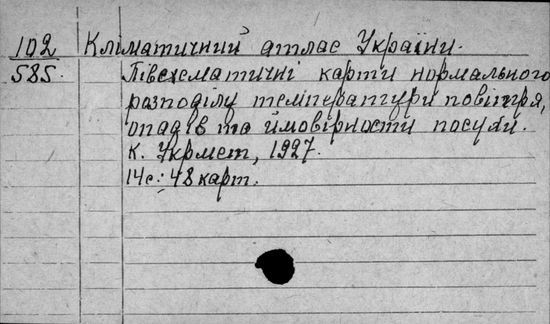 102 Кліматичний атлас України.
585. Півсхематичні карти нормального
розподілу температури повітря,
опадів та ймовірности посухи.
К. Укрмет, 1927.
14с.; 48 карт.